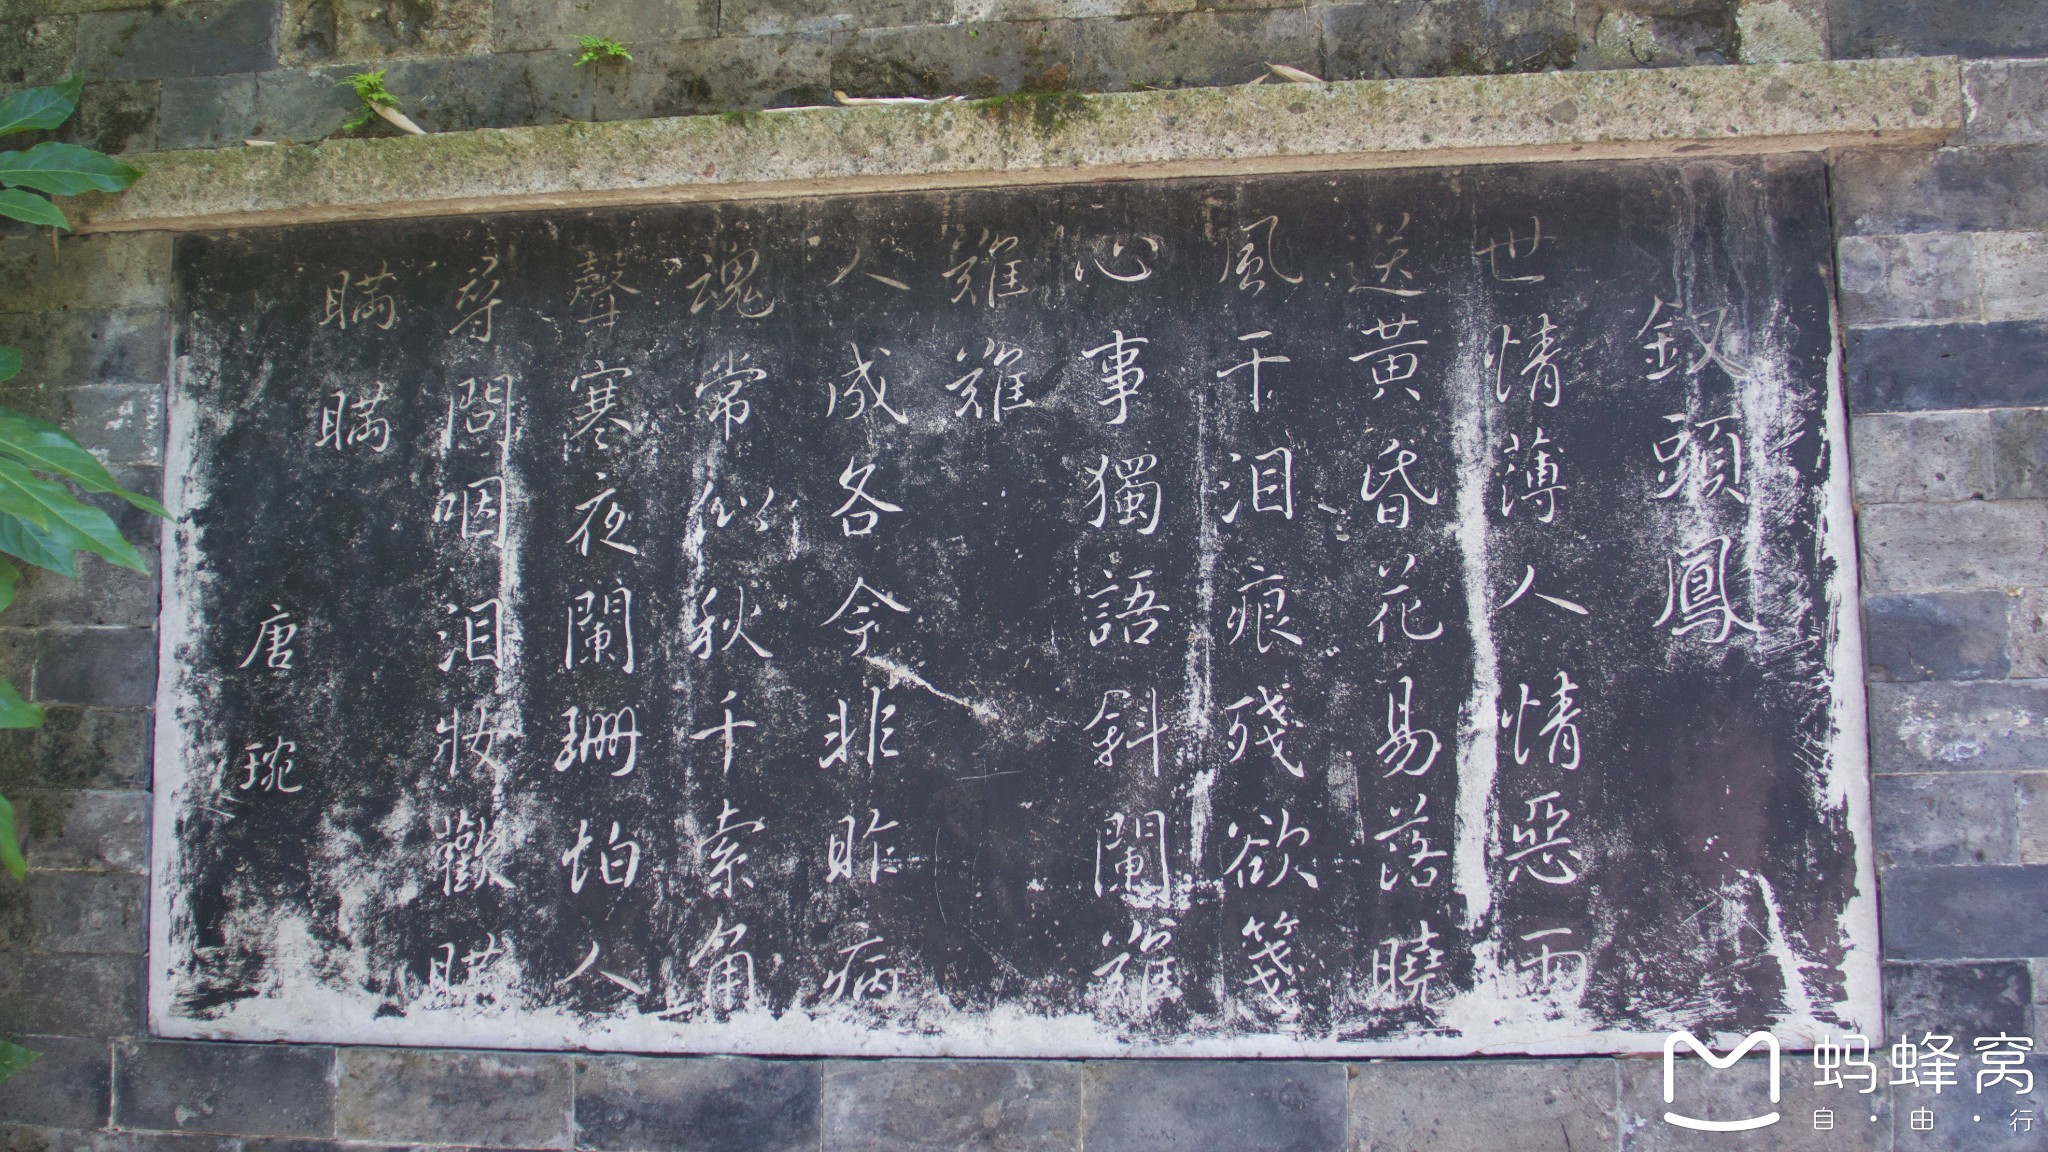 釵頭鳳
世情薄人情惡雨
送黃昏花易落曉
風干泪痕殘欲箋
心事獨語斜闌難
難難
人成各今非昨病
魂常似秋千索角
聲寒夜闌珊怕人
尋問咽泪妝歡瞞
瞞瞞
唐琬
蚂蜂窝
自·由·行